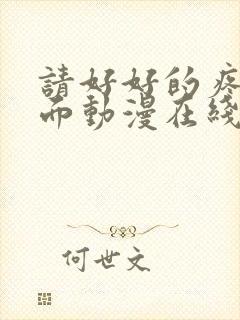 請好好的疼
而動漫在綫
何世文